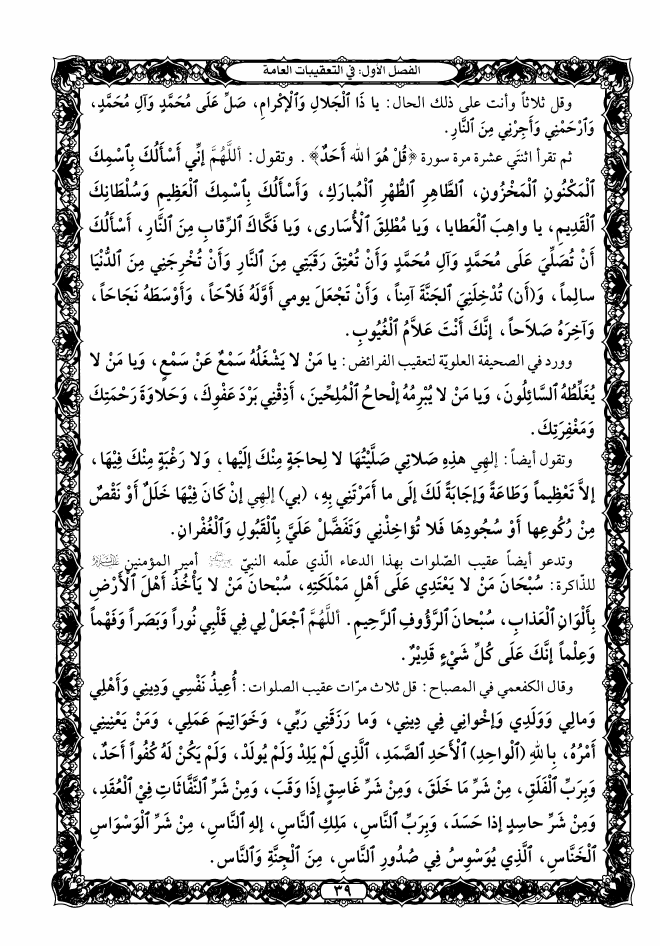 الفصل الأول: في التعقيبات العامة
وقل ثلاثاً وأنت على ذلك الحال: يا ذَا ٱلْجَلالِ وَٱلْإِكْرامِ، صَلِّ عَلَى مُحَمَّدٍ وَآلِ مُحَمَّدٍ،
وَٱرْحَمْنِي وَأَجِرْنِي مِنَ ٱلنَّارِ.
ثم تقرأ اثنتَي عشرة مرة سورة ﴿قُلْ هُوَ ٱللهُ أَحَدٌ﴾. وتقول: أَللَّهُمَّ إِنِّي أَسْأَلُكَ بِٱسْمِكَ
ٱلْمَكْنُونِ ٱلْمَخْزُونِ، ٱلطَّاهِرِ ٱلطُّهْرِ ٱلْمُبارَكِ، وَأَسْأَلُكَ بِٱسْمِكَ ٱلْعَظِيمِ وَسُلْطَانِكَ
ٱلْقَدِيمِ، يا واهِبَ ٱلْعَطايا، وَيا مُطْلِقَ ٱلْأُسارى، وَيا فَكَّاكَ ٱلرِّقابِ مِنَ ٱلنَّارِ، أَسْأَلُكَ
أَنْ تُصَلِّيَ عَلَى مُحَمَّدٍ وَآلِ مُحَمَّدٍ وَأَنْ تُعْتِقَ رَقَبَتِي مِنَ ٱلنَّارِ وَأَنْ تُخْرِجَنِي مِنَ ٱلدُّنْيَا
سالِماً، وَ(أَن) تُدْخِلَنِيَ ٱلجَنَّةَ آمِناً، وَأَنْ تَجْعَلَ يومي أَوَّلَهُ فَلاَحَاً، وَأَوْسَطَهُ نَجَاحَاً،
وَآخِرَهُ صَلاَحاً، إِنَّكَ أَنْتَ عَلاَّمُ ٱلْغُيُوبِ.
وورد في الصحيفة العلويّة لتعقيب الفرائض: يا مَنْ لا يَشْغَلُهُ سَمْعٌ عَنْ سَمْعٍ، وَيا مَنْ لا
يُغَلِّطُهُ ٱلسَّائِلُونَ، وَيا مَنْ لا يُبْرِمُهُ إِلْحاحُ ٱلْمُلِحِّينَ، أَذِقْنِي بَرْدَ عَفْوِكَ، وَحَلاوَةَ رَحْمَتِكَ
وَمَغْفِرَتِكَ.
وتقول أيضاً: إلهِي هذِهِ صَلاتِي صَلَّيْتُهَا لا لِحاجَةٍ مِنْكَ إِلَيْها، وَلا رَغْبَةٍ مِنْكَ فِيْهَا،
إِلاَّ تَعْظِيماً وَطَاعَةً وَإِجَابَةً لَكَ إِلَى ما أَمَرْتَنِي بِهِ، (بي) إِلهِي إِنْ كَانَ فِيْهَا خَلَلٌ أَوْ نَقْصٌ
مِنْ رُكُوعِها أَوْ سُجُودِهَا فَلا تُؤاخِذْنِي وَتَفَضَّلْ عَلَيَّ بِٱلْقَبُولِ وَٱلْغُفْرانِ.
وتدعو أيضاً عقيب الصّلوات بهذا الدعاء الّذي علّمه النبيّ أمير المؤمنين
للذاكرة: سُبْحَانَ مَنْ لا يَعْتَدِي عَلَى أَهْلِ مَمْلَكَتِهِ، سُبْحانَ مَنْ لا يَأْخُذُ أَهْلَ ٱلْأَرْضِ
بِأَلْوَانِ ٱلْعَذابِ، سُبْحانَ ٱلرَّؤُوفِ ٱلرَّحِيمِ. أَللَّهُمَّ ٱجْعَلْ لِي فِي قَلْبِي نُوراً وَبَصَراً وَفَهْماً
وَعِلْماً إِنَّكَ عَلَى كُلِّ شَيْءٍ قَدِيْرٌ.
وقال الكفعمي في المصباح: قل ثلاث مرّات عقيب الصلوات: أُعِيذُ نَفْسِي وَدِينِي وَأَهْلِي
وَمالِي وَوَلَدِي وَإِخْوانِي فِي دِينِي، وَما رَزَقَنِي رَبِّي، وَخَوَاتِيمَ عَمَلِي، وَمَنْ يَعْنِينِي
أَمْرُهُ، بِاللهِ (ٱلْواحِدِ) ٱلْأَحَدِ ٱلصَّمَدِ، ٱلَّذِي لَمْ يَلِدْ وَلَمْ يُولَدْ، وَلَمْ يَكُنْ لَهُ كُفُواً أَحَدٌ،
وَبِرَبِّ ٱلْفَلَقِ، مِنْ شَرِّ مَا خَلَقَ، وَمِنْ شَرِّ غاسِقٍ إِذَا وَقَبَ، وَمِنْ شَرِّ ٱلنَّفَّاثَاتِ فِيْ ٱلْعُقَدِ،
وَمِنْ شَرِّ حاسِدٍ إِذا حَسَدَ، وَبِرَبِّ ٱلنَّاسِ، مَلِكِ ٱلنَّاسِ، إِلهِ ٱلنَّاسِ، مِنْ شَرِّ ٱلْوَسْوَاسِ
ٱلْخَنَّاسِ، ٱلَّذِي يُوَسْوِسُ فِي صُدُورِ ٱلنَّاسِ، مِنَ ٱلْجِنَّةِ وَٱلنَّاس.
٣٩